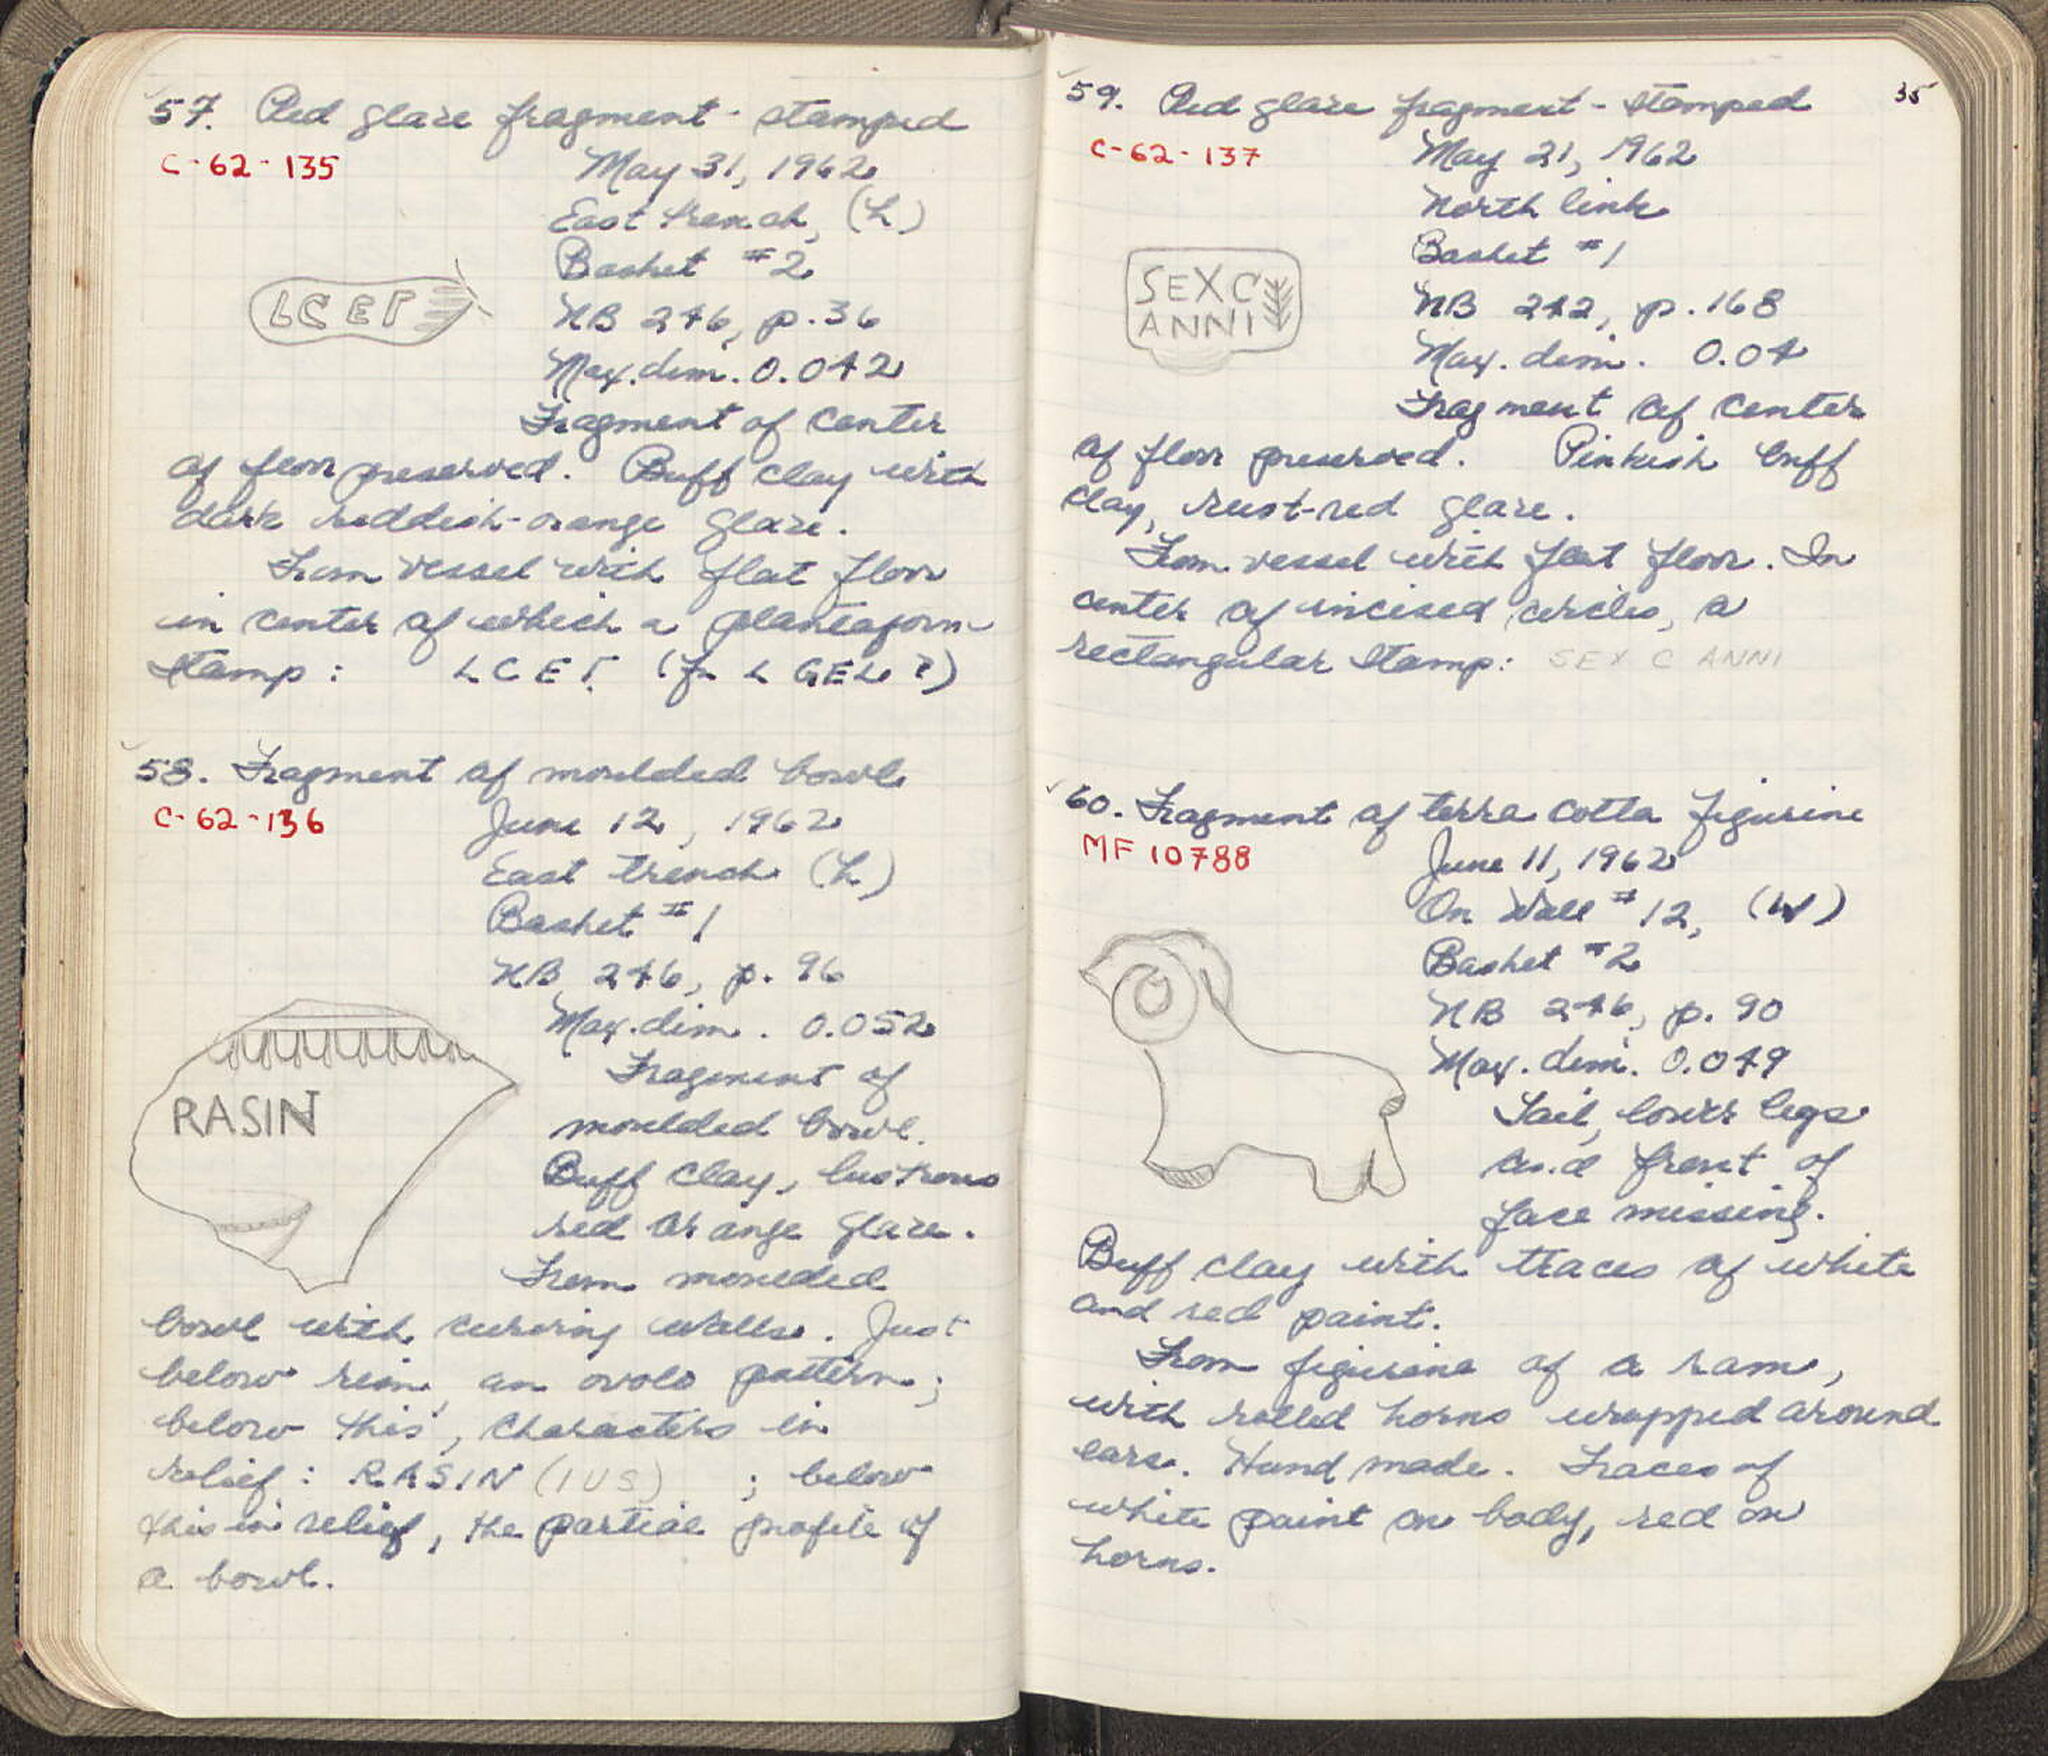 57. Red glaze fragment - stamped
C-62-135
May 31, 1962
East trench, (L)
Basket #2
LCEΓ
NB 246, p. 36
Max. dim. 0.042
Fragment of center
of floor preserved. Buff clay with
dark reddish-orange glaze.
From vessel with flat floor
in center of which a plantaform
stamp: LCEΓ. (for L GEL ?)
58. Fragment of moulded bowl
C-62-136
June 12, 1962
East trench (L)
Basket #1
NB 246, p. 96
Max. dim. 0.052
Fragment of
RASIN
moulded bowl.
Buff clay, lustrous
red orange glaze.
From moulded
bowl with curving walls. Just
below rim, an ovolo pattern;
below this, characters in
relief: RASIN (IUS) ; below
this in relief, the partial profile of
a bowl.
35
59. Red glaze fragment - stamped
C-62-137
May 21, 1962
North link
Basket #1
SEX C
ANNI
NB 242, p. 168
Max. dim. 0.04
Fragment of center
of floor preserved. Pinkish buff
clay, rust-red glaze.
From vessel with flat floor. In
center of incised circles, a
rectangular stamp: SEX C ANNI
60. Fragment of terra cotta figurine
MF 10788
June 11, 1962
On Wall #12, (W)
Basket #2
NB 246, p. 90
Max. dim. 0.049
Tail, lower legs
and front of
face missing.
Buff clay with traces of white
and red paint.
From figurine of a ram,
with rolled horns wrapped around
ears. Hand made. Traces of
white paint on body, red on
horns.